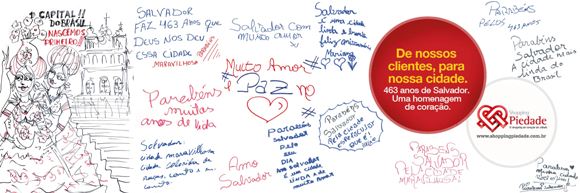 1 CAPITAL!!
DO BRASIL
NASCEMOS
PRIMEIRO!!
SALVADOR
FAZ 463 ANOS QUE
DEUS NOS DEU
ESSA CIDADE
MARAVILHOSA
Parabéns
muitas
anos de vida
Salvador
cidade maravilhosa
cidade
Salvador com
muito amor
#Muito Amor
e Paz no
Amo
Salvador
Parabéns
pelo
seu
DIA
Salvador
é uma
cidade
linda e de
muito amor
Salvador
é uma cidade
linda e
feliz aniversário
Mariana
Parabéns
Salvador
Pela cidade
espetacular
que é
você!
De nossos
clientes, para
nossa cidade.
463 anos de Salvador.
Uma homenagem
de coração.
PARABÉNS
SALVADOR
PELA CIDADE
MARAVILHOSA!
PARABÉNS
PELOS 463 ANOS
Parabéns
Salvador
A cidade mais
linda do
Brasil
Shopping
Piedade
O shopping do coração da cidade
www.shoppingpiedade.com.br
Parabéns
minha cidade